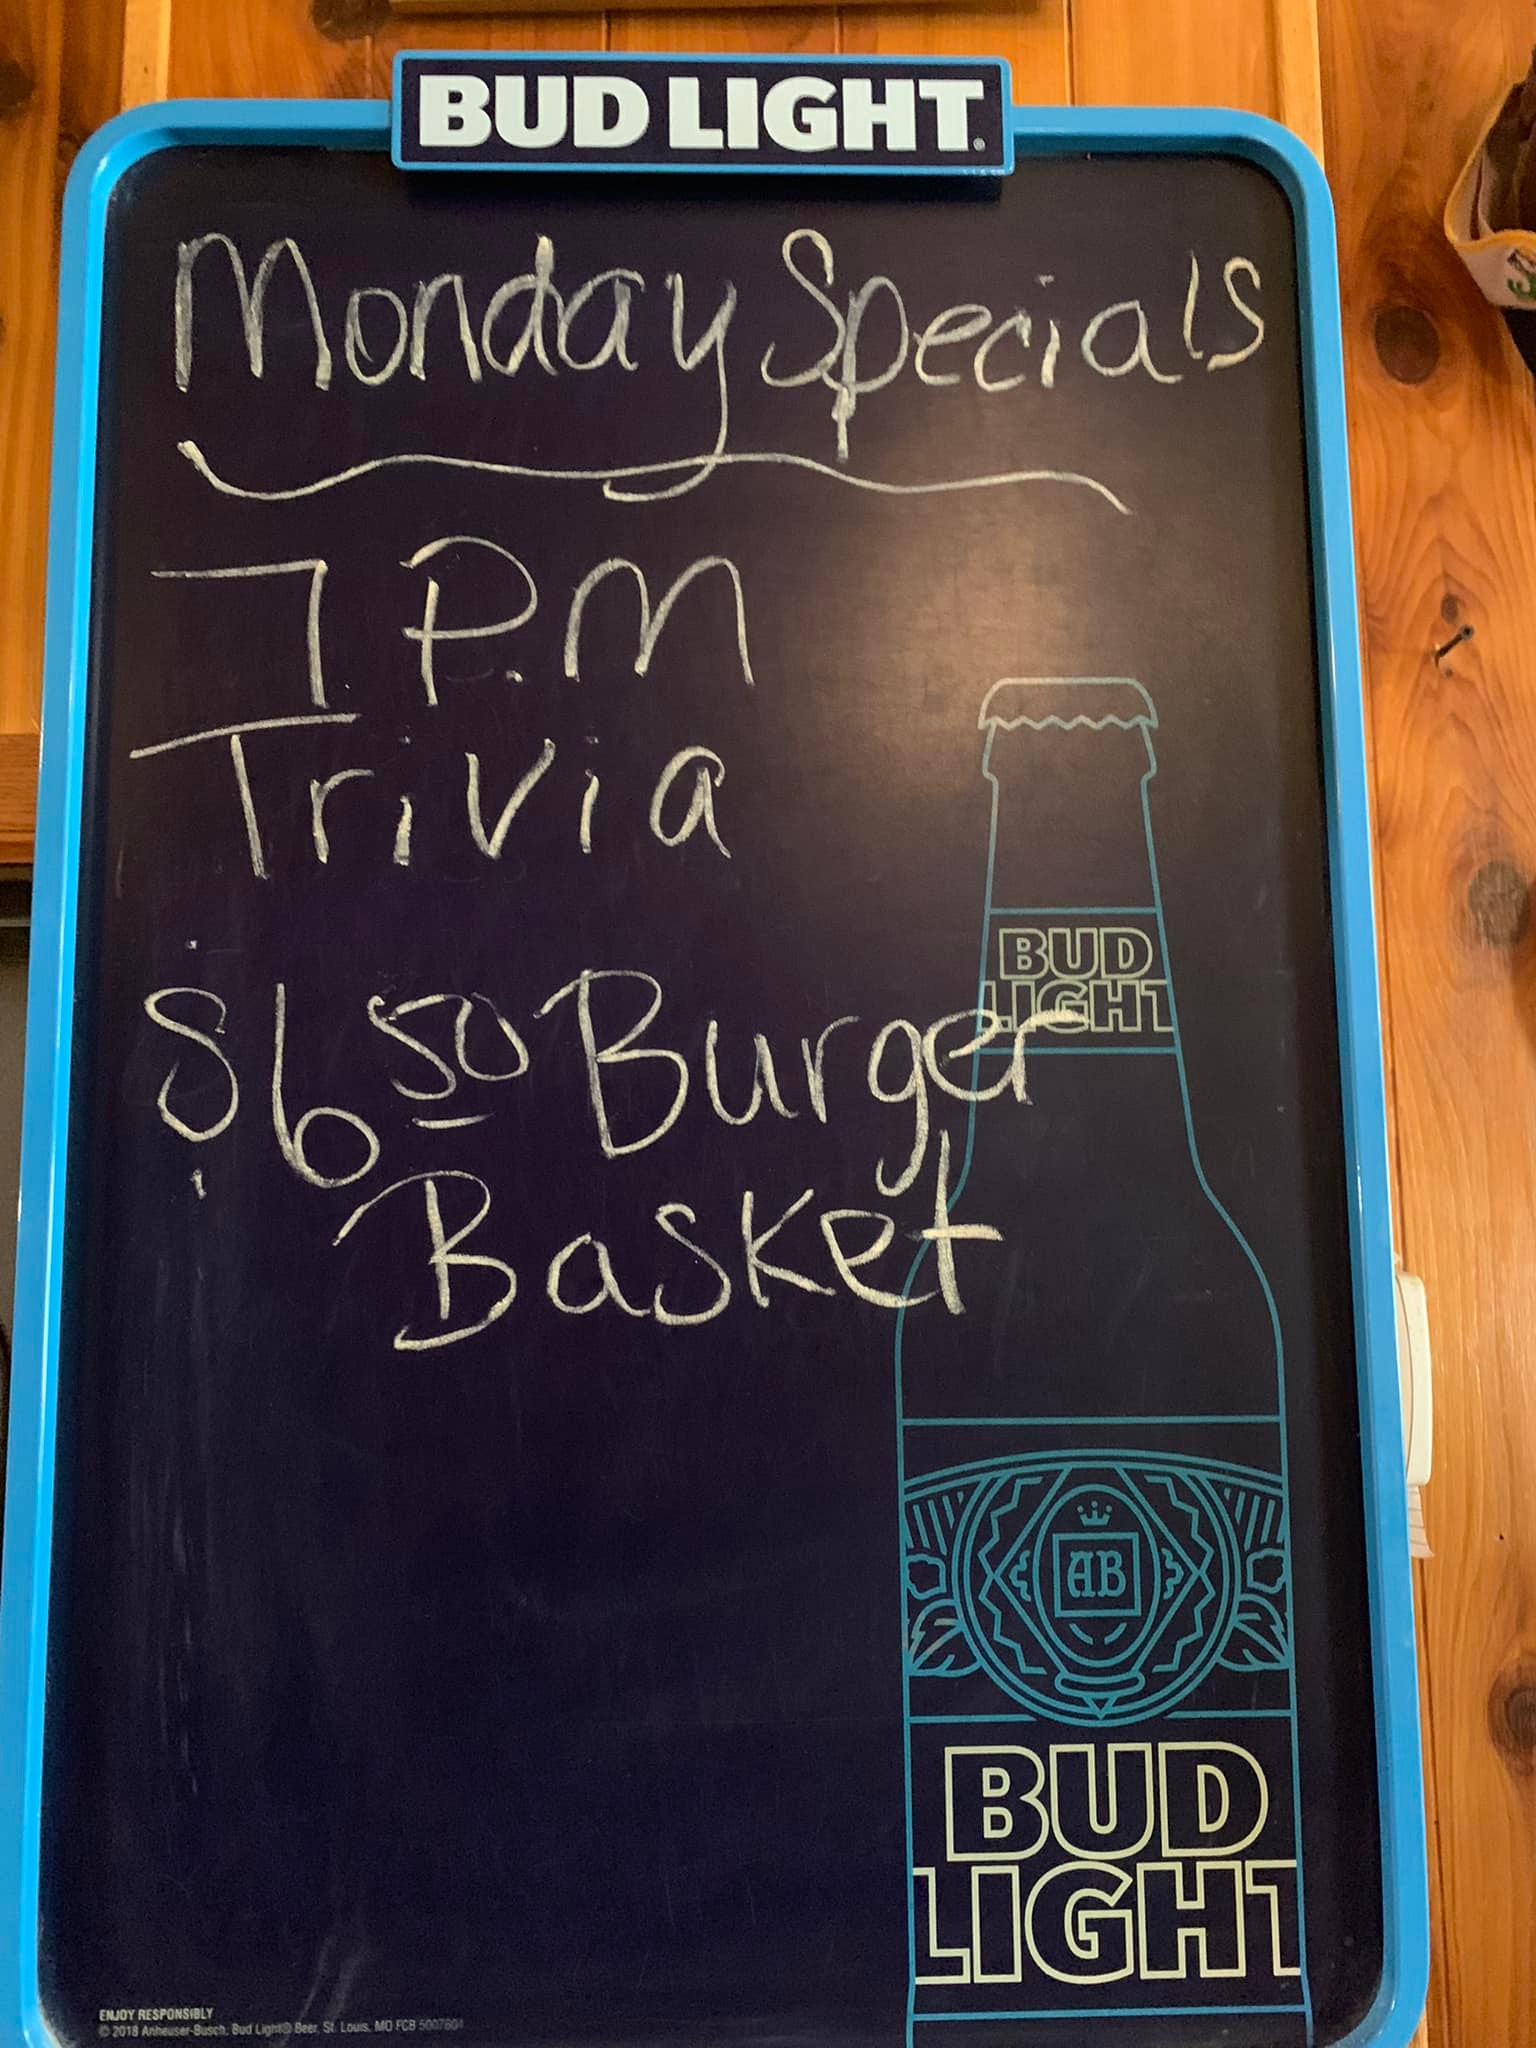 BUD LIGHT.
Monday Specials
7 P.M
Trivia
$6 50 Burger
Basket
BUD
LIGHT
AB
BUD
LIGHT
ENJOY RESPONSIBLY
© 2018 Anheuser-Busch, Bud Light® Beer, St. Louis, MO FCB 5007804